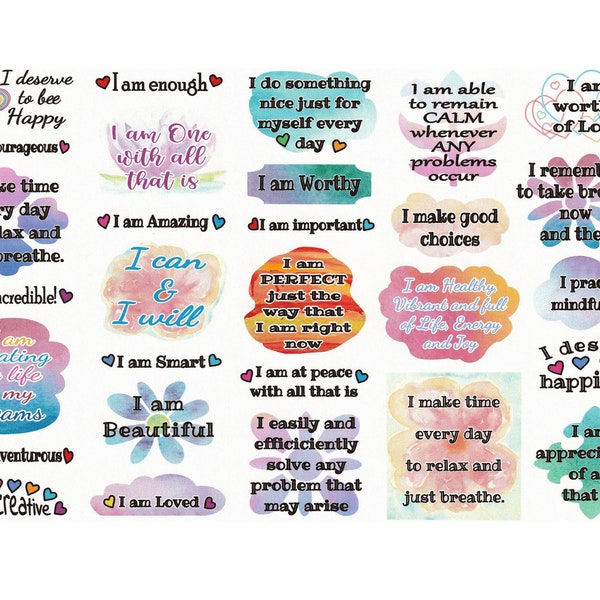 I deserve
to bee
Happy
urageous
ke time
ry day
lax and
breathe.
ncredible!
am
ating
life
my
ams
venturous
Creative
I am enough
I am One
with all
that is
I am Amazing
I can
&
I will
I am Smart
I am
Beautiful
I am Loved
I do something
nice just for
myself every
day
I am Worthy
I am important
I am
PERFECT
just the
way that
I am right
now
I am at peace
with all that is
I easily and
efficiciently
solve any
problem that
may arise
I am able
to remain
CALM
whenever
ANY
problems
occur
I make good
choices
I am Healthy,
Vibrant and full
of Life, Energy
and Joy
I make time
every day
to relax and
just breathe.
I am
worth
of Lo
I rememb
to take bre
now
and the
I prac
mindfu
I des
happi
I am
apprecia
of a
that